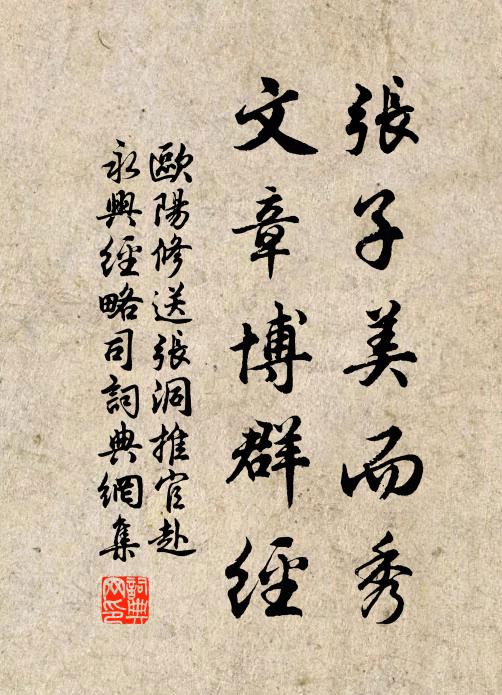 張子美而秀
文章博群經
歐陽修送張洞推官赴
永興經略司詞典網集
詞典
网印